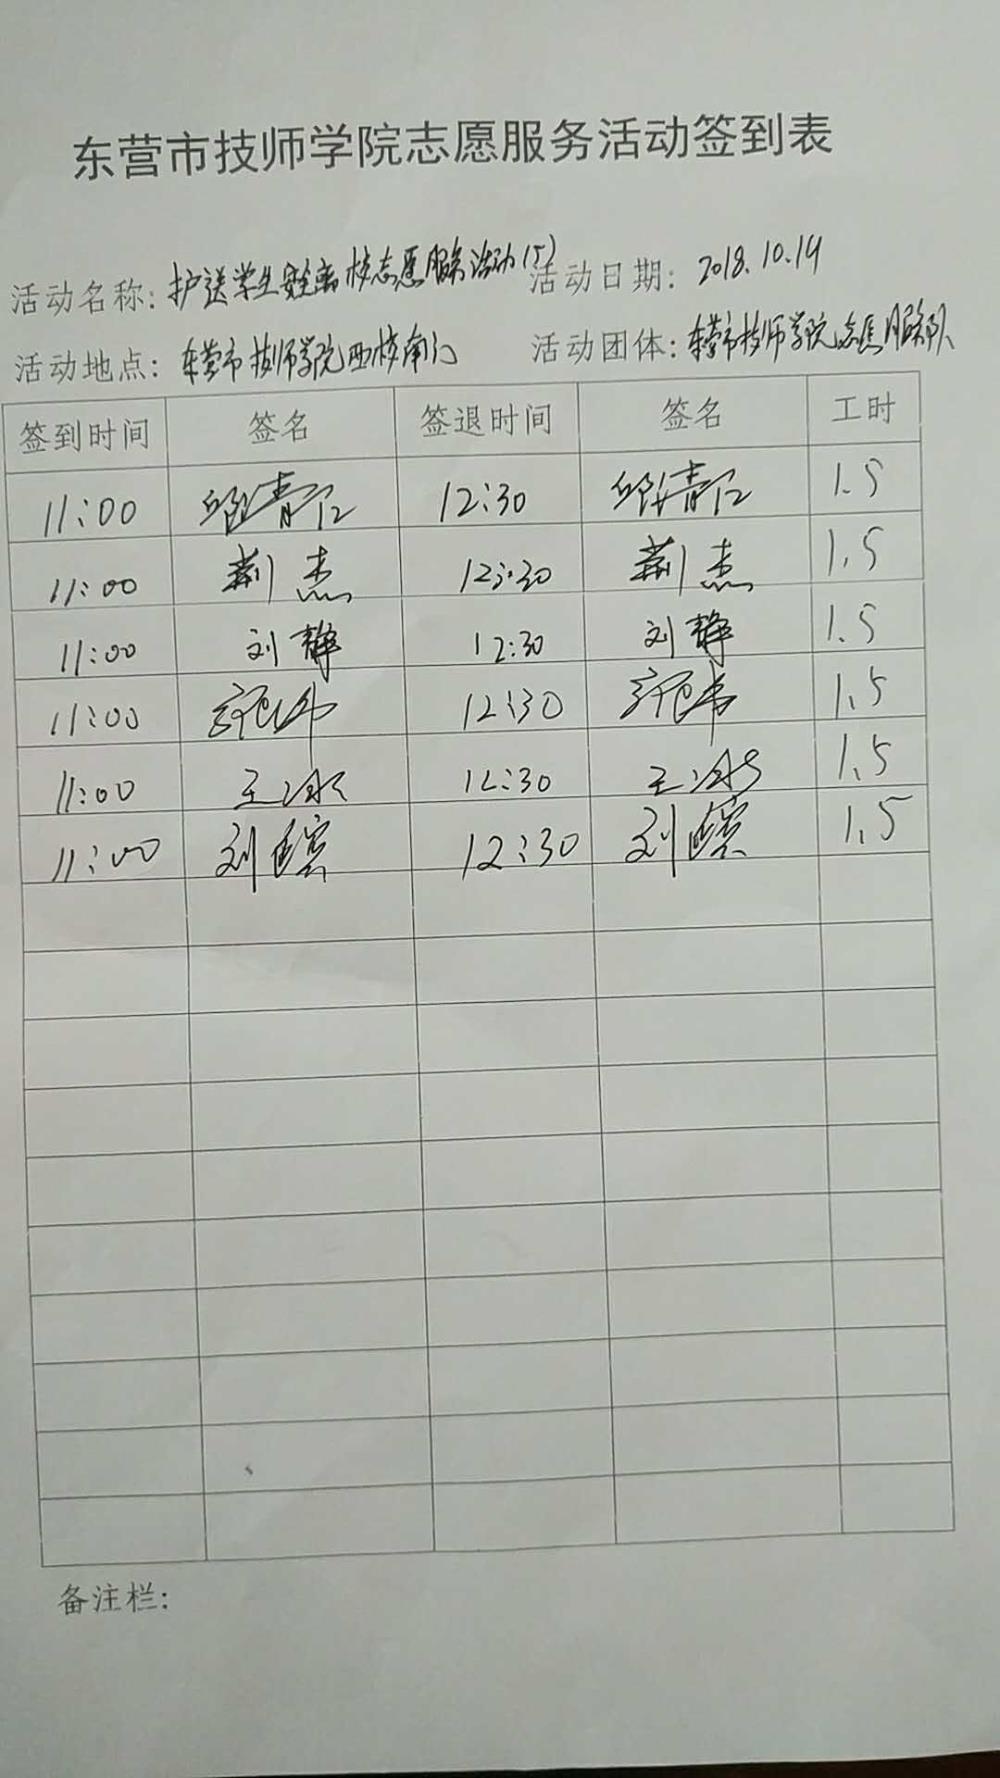 东营市技师学院志愿服务活动签到表
活动名称: 护送学生安全离校志愿服务活动(5) 活动日期: 2018.10.19
活动地点: 东营市技师学院西校南门 活动团体: 东营市技师学院志愿服务队
签到时间 签名 签退时间 签名 工时
11:00 12:30 1.5
11:00 荆杰 12:30 荆杰 1.5
11:00 刘静 12:30 刘静 1.5
11:00 12:30 1.5
11:00 王冰 12:30 王冰 1.5
11:00 刘 12:30 刘 1.5
备注栏: